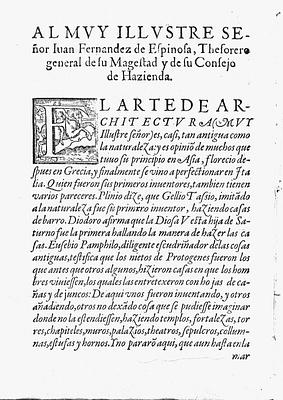 AL MVY ILLVSTRE SE-
ñor Iuan Fernandez de Espinosa, Thesorero
general de su Magestad y de su Consejo
de Hazienda.
EL ARTE DE AR-
CHITECTVRA (MVY
Illustre señor) es, casi, tan antigua como
la naturaleza: y es opinió de muchos que
tuuo su principio en Asia, florecio des
pues en Grecia, y finalmente se vino a perfectionar en Ita
lia. Quien fueron sus primeros inuentores, tambien tienen
varios pareceres. Plinio dize, que Gellio Tasio, imitádo
a la naturaleza fue su primero inuentor, haziendo casas
de barro. Diodoro afirma que la Diosa Vesta hija de Sa-
turno fue la primera hallando la manera de hazer las ca
sas. Eusebio Pamphilo, diligente escudriñador de las cosas
antiguas, testifica que los nietos de Protogenes fueron los
que antes que otros algunos, hizieron casas en que los hom
bres viuiessen, los quales las entretexeron con hojas de ca-
ñas y de juncos: De aqui vnos fueron inuentando, y otros
añadiendo, otros no dexádo cosa que se pudiesse imaginar
donde no la estendiessen, haziendo templos, fortalezas, tor
res, chapiteles, muros, palazios, theatros, sepulcros, collum-
nas, estufas y hornos. I no pararó aqui, que aun hasta en la
mar